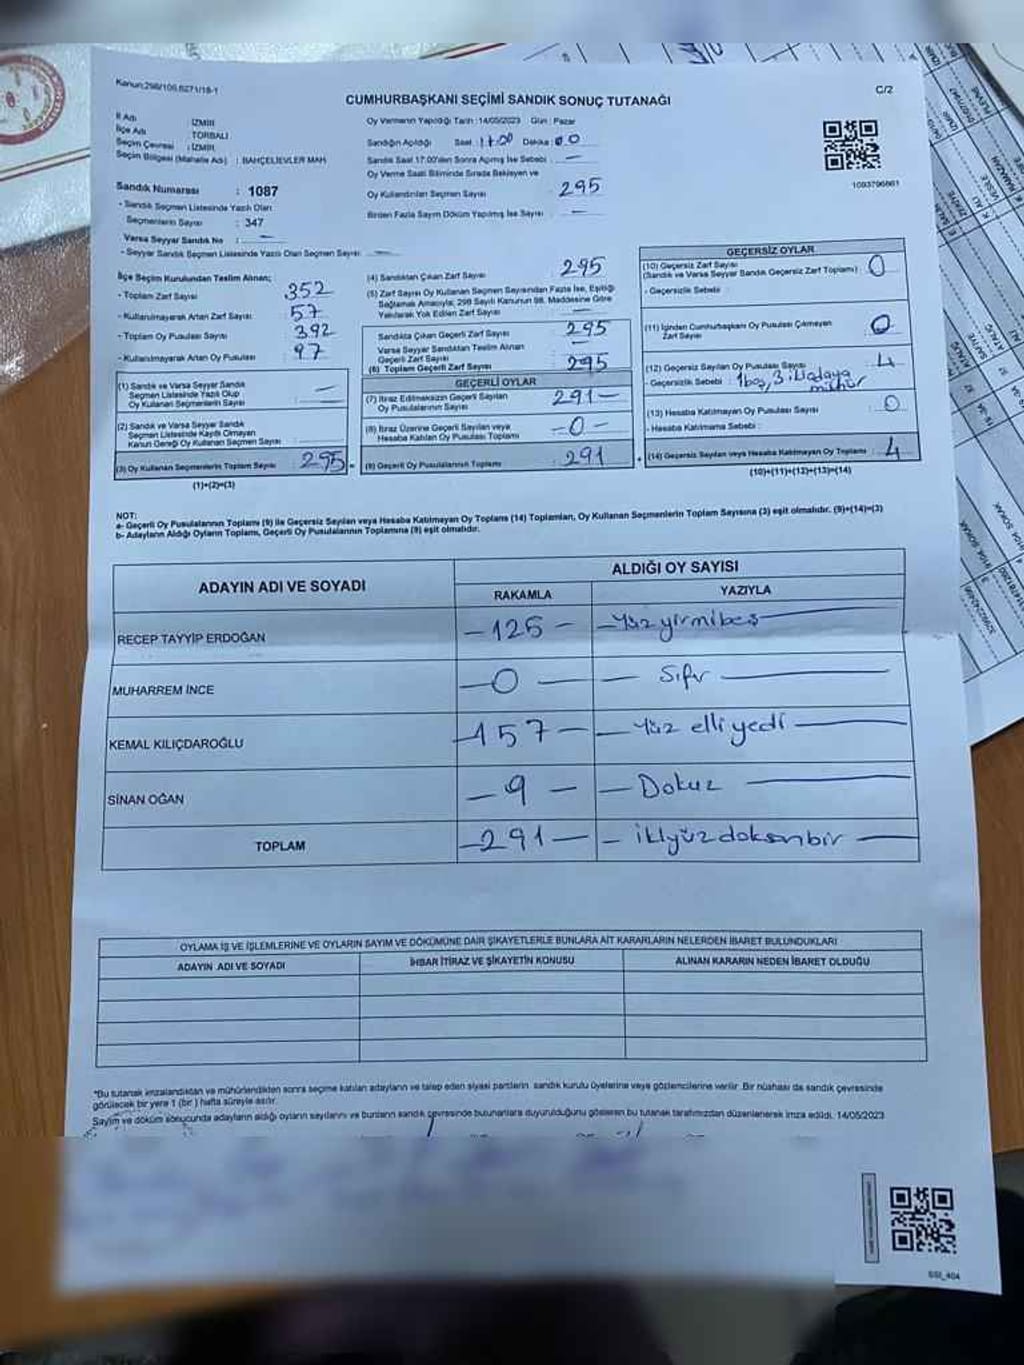 Kanun:298/105,6271/18-1
C/2
CUMHURBAŞKANI SEÇİMİ SANDIK SONUÇ TUTANAĞI
İl Adı : İZMİR
İlçe Adı : TORBALI
Seçim Çevresi : İZMİR
Seçim Bölgesi (Mahalle Adı) : BAHÇELİEVLER MAH
Sandık Numarası : 1087
- Sandık Seçmen Listesinde Yazılı Olan
Seçmenlerin Sayısı : 347
Varsa Seyyar Sandık No : —
- Seyyar Sandık Seçmen Listesinde Yazılı Olan Seçmen Sayısı : —
Oy Vermenin Yapıldığı Tarih : 14/05/2023 Gün : Pazar
Sandığın Açıldığı Saat : 17:00 Dakika : 00
Sandık Saat 17.00'den Sonra Açılmış İse Sebebi : —
Oy Verme Saati Bitiminde Sırada Bekleyen ve
Oy Kullandırılan Seçmen Sayısı 295
Birden Fazla Sayım Döküm Yapılmış İse Sayısı : —
1093796661
İlçe Seçim Kurulundan Teslim Alınan;
- Toplam Zarf Sayısı 352
- Kullanılmayarak Artan Zarf Sayısı : 57
- Toplam Oy Pusulası Sayısı 392
- Kullanılmayarak Artan Oy Pusulası : 97
(1) Sandık ve Varsa Seyyar Sandık
Seçmen Listesinde Yazılı Olup
Oy Kullanan Seçmenlerin Sayısı —
(2) Sandık ve Varsa Seyyar Sandık
Seçmen Listesinde Kayıtlı Olmayan
Kanun Gereği Oy Kullanan Seçmen Sayısı :
(3) Oy Kullanan Seçmenlerin Toplam Sayısı 295
(1)+(2)=(3)
(4) Sandıktan Çıkan Zarf Sayısı 295
(5) Zarf Sayısı Oy Kullanan Seçmen Sayısından Fazla İse, Eşitliği
Sağlamak Amacıyla; 298 Sayılı Kanunun 98. Maddesine Göre
Yakılarak Yok Edilen Zarf Sayısı —
Sandıkta Çıkan Geçerli Zarf Sayısı 295
Varsa Seyyar Sandıktan Teslim Alınan
Geçerli Zarf Sayısı —
(6) Toplam Geçerli Zarf Sayısı 295
GEÇERLİ OYLAR
(7) İtiraz Edilmeksizin Geçerli Sayılan
Oy Pusulalarının Sayısı 291 —
(8) İtiraz Üzerine Geçerli Sayılan veya
Hesaba Katılan Oy Pusulası Toplamı — 0 —
(9) Geçerli Oy Pusulalarının Toplamı 291
GEÇERSİZ OYLAR
(10) Geçersiz Zarf Sayısı
(Sandık ve Varsa Seyyar Sandık Geçersiz Zarf Toplamı) : 0
- Geçersizlik Sebebi :
(11) İçinden Cumhurbaşkanı Oy Pusulası Çıkmayan
Zarf Sayısı 0
(12) Geçersiz Sayılan Oy Pusulası Sayısı 4
- Geçersizlik Sebebi : 1 boş, 3
mühür
(13) Hesaba Katılmayan Oy Pusulası Sayısı : 0
- Hesaba Katılmama Sebebi :
(14) Geçersiz Sayılan veya Hesaba Katılmayan Oy Toplamı : 4
(10)+(11)+(12)+(13)=(14)
NOT:
a- Geçerli Oy Pusulalarının Toplamı (9) ile Geçersiz Sayılan veya Hesaba Katılmayan Oy Toplamı (14) Toplamları, Oy Kullanan Seçmenlerin Toplam Sayısına (3) eşit olmalıdır. (9)+(14)=(3)
b- Adayların Aldığı Oyların Toplamı, Geçerli Oy Pusulalarının Toplamına (9) eşit olmalıdır.
ADAYIN ADI VE SOYADI
ALDIĞI OY SAYISI
RAKAMLA YAZIYLA
RECEP TAYYİP ERDOĞAN — 125 — — Yüz yirmibeş —
MUHARREM İNCE — 0 — — Sıfır —
KEMAL KILIÇDAROĞLU — 157 — — Yüz elli yedi —
SİNAN OĞAN — 9 — — Dokuz —
TOPLAM — 291 — — ikiyüz doksan bir —
OYLAMA İŞ VE İŞLEMLERİNE VE OYLARIN SAYIM VE DÖKÜMÜNE DAİR ŞİKAYETLERLE BUNLARA AİT KARARLARIN NELERDEN İBARET BULUNDUKLARI
ADAYIN ADI VE SOYADI İHBAR İTİRAZ VE ŞİKAYETİN KONUSU ALINAN KARARIN NEDEN İBARET OLDUĞU
*Bu tutanak imzalandıktan ve mühürlendikten sonra seçime katılan adayların ve talep eden siyasi partilerin sandık kurulu üyelerine veya gözlemcilerine verilir. Bir nüshası da sandık çevresinde
görülecek bir yere 1 (bir) hafta süreyle asılır.
Sayım ve döküm sonucunda adayların aldığı oyların sayılarını ve bunların sandık çevresinde bulunanlara duyurulduğunu gösteren bu tutanak tarafımızdan düzenlenerek imza edildi. 14/05/2023